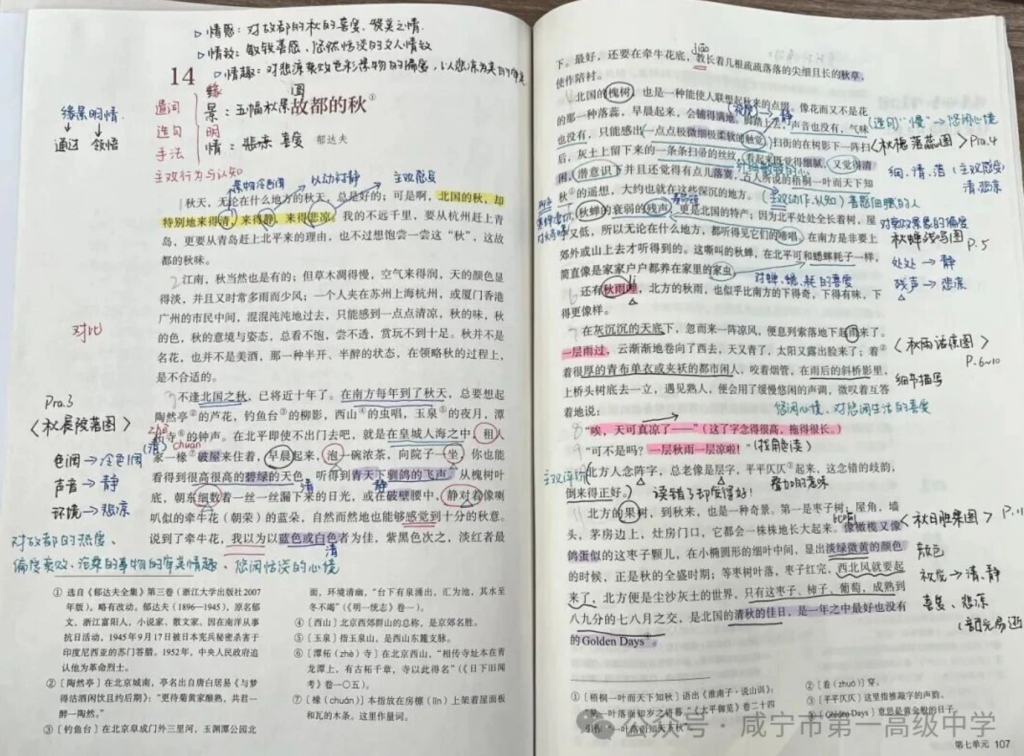 ▷情感：对故都的秋的喜爱、赞美之情.
▷情致：敏锐善感、悠然恬淡的文人情致
▷情趣：对悲凉衰败色彩景物的偏爱，以悲凉为美的审美
14
故都的秋①
郁达夫
缘景明情.
通过 领悟
遣词
造句
手法
缘 图
景：五幅秋景
明
情：悲凉 喜爱
主观行为与认知
景物冷色调 以动衬静 主观感受
秋天，无论在什么地方的秋天，总是好的；可是啊，北国的秋，却
特别地来得清，来得静，来得悲凉。我的不远千里，要从杭州赶上青
岛，更要从青岛赶上北平来的理由，也不过想饱尝一尝这“秋”，这故
都的秋味。
2
江南，秋当然也是有的；但草木凋得慢，空气来得润，天的颜色显
得淡，并且又时常多雨而少风；一个人夹在苏州上海杭州，或厦门香港
广州的市民中间，混混沌沌地过去，只能感到一点点清凉，秋的味，秋
的色，秋的意境与姿态，总看不饱，尝不透，赏玩不到十足。秋并不是
名花，也并不是美酒，那一种半开、半醉的状态，在领略秋的过程上，
是不合适的。
对比
不逢北国之秋，已将近十余年了。在南方每年到了秋天，总要想起
陶然亭②的芦花，钓鱼台③的柳影，西山④的虫唱，玉泉⑤的夜月，潭
柘寺⑥的钟声。在北平即使不出门去吧，就是在皇城人海之中，租人
家一椽⑦破屋来住着，早晨起来，泡一碗浓茶，向院子一坐，你也能
看得到很高很高的碧绿的天色，听得到青天下驯鸽的飞声。从槐树叶
底，朝东细数着一丝一丝漏下来的日光，或在破壁腰中，静对着像喇
叭似的牵牛花（朝荣）的蓝朵，自然而然地也能够感觉到十分的秋意。
说到了牵牛花，我以为以蓝色或白色者为佳，紫黑色次之，淡红者最
Pra.3
〈秋晨院落图〉
zhè
chuán
（清）
色调→冷色调
声音→静
环境→悲凉
清
静
清
对故都的热爱、
偏爱衰败、沧桑的事物的审美情趣、悠闲恬淡的心境
① 选自《郁达夫全集》第三卷（浙江大学出版社2007
年版）。略有改动。郁达夫（1896—1945），原名郁
文，浙江富阳人，小说家、散文家。因在南洋从事
抗日活动，1945年9月17日被日本宪兵秘密杀害于
印度尼西亚的苏门答腊。1952年，中央人民政府追
认他为革命烈士。
②［陶然亭］在北京城南，亭名出自唐白居易《与梦
得沽酒闲饮且约后期》：“更待菊黄家酿熟，共君一
醉一陶然。”
③［钓鱼台］在北京阜成门外三里河，玉渊潭公园北
面，环境清幽，“台下有泉涌出，汇为池，其水至
冬不竭”（《明一统志》卷一）。
④［西山］北京西郊群山的总称，是京郊名胜。
⑤［玉泉］指玉泉山，是西山东麓支脉。
⑥［潭柘（zhè）寺］在北京西山，“相传寺址本在青
龙潭上，有古柘千章，寺以此得名”（《日下旧闻
考》卷一〇五）。
⑦［椽（chuán）］本指放在房檩（lǐn）上架着屋面板
和瓦的木条。这里作量词。
下。最好，还要在牵牛花底，教长着几根疏疏落落的尖细且长的秋草，
使作陪衬。
北国的槐树，也是一种能使人联想起秋来的点缀。像花而又不是花
的那一种落蕊，早晨起来，会铺得满地。脚踏上去，声音也没有，气味
也没有，只能感出一点点极微细极柔软的触觉。扫街的在树影下一阵扫
后，灰土上留下来的一条条扫帚的丝纹，看起来既觉得细腻，又觉得清
闲，潜意识下并且还觉得有点儿落寞，古人所说的梧桐一叶而天下知
秋①的遥想，大约也就在这些深沉的地方。
秋蝉的衰弱的残声，更是北国的特产；因为北平处处全长着树，屋
子又低，所以无论在什么地方，都听得见它们的啼唱。在南方是非要上
郊外或山上去才听得到的。这嘶叫的秋蝉，在北平可和蟋蟀耗子一样，
简直像是家家户户都养在家里的家虫。
还有秋雨哩，北方的秋雨，也似乎比南方的下得奇，下得有味，下
得更像样。
在灰沉沉的天底下，忽而来一阵凉风，便息列索落地下起雨来了。
一层雨过，云渐渐地卷向了西去，天又青了，太阳又露出脸来了；着②
着很厚的青布单衣或夹袄的都市闲人，咬着烟管，在雨后的斜桥影里，
上桥头树底去一立，遇见熟人，便会用了缓慢悠闲的声调，微叹着互答
着地说：
“唉，天可真凉了——”（这了字念得很高，拖得很长。）
“可不是吗？一层秋雨一层凉啦！”
北方人念阵字，总老像是层字，平平仄仄③起来，这念错的歧韵，
倒来得正好。
读错了却觉得好！
叠加的意味
北方的果树，到秋来，也是一种奇景。第一是枣子树；屋角，墙
头，茅房边上，灶房门口，它都会一株株地长大起来。像橄榄又像
鸽蛋似的这枣子颗儿，在小椭圆形的细叶中间，显出淡绿微黄的颜色
的时候，正是秋的全盛时期；等枣树叶落，枣子红完，西北风就要起
来了，北方便是尘沙灰土的世界，只有这枣子、柿子、葡萄，成熟到
八九分的七八月之交，是北国的清秋的佳日，是一年之中最好也没有
的Golden Days④。
〈秋槐落蕊图〉Pra.4
细、清、落（主观感受）
清.悲凉
秋蝉残鸣图
P.5
处处→静
残声→悲凉
对蝉、蟋、耗的喜爱
〈秋雨话凉图〉
P.6~10
细节描写
悠闲心境、对悠闲生活的喜爱
〈秋日胜果图〉P.11
颜色
秋度→清、静
喜爱、悲凉
①［梧桐一叶而天下知秋］语出《淮南子·说山训》：
②［着（zhuó）］穿。
③［平平仄仄］这里指推敲字的声韵。
④［Golden Days］意思是黄金般的日子。
公众号·咸宁市第一高级中学
第七单元 107